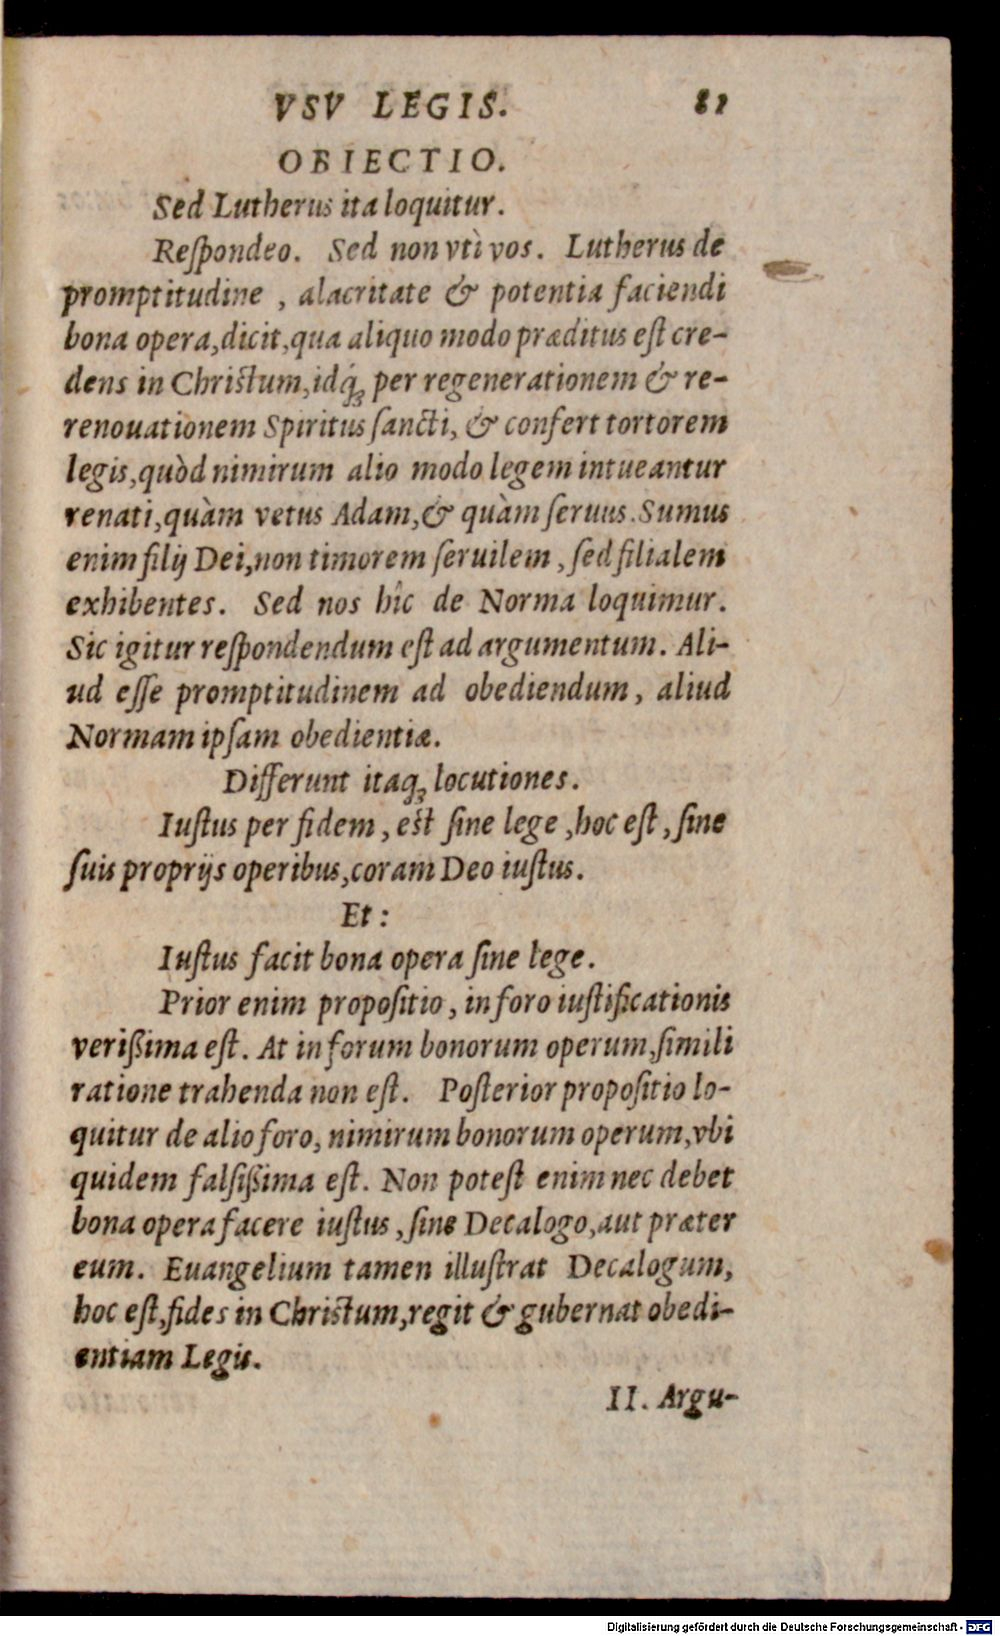 VSV LEGIS. 81
OBIECTIO.
Sed Lutherus ita loquitur.
Reſpondeo. Sed non vtì vos. Lutherus de
promptitudine , alacritate & potentia faciendi
bona opera,dicit,qua aliquo modo præditus eſt cre-
dens in Chriſtum,idq́ꝫ per regenerationem & re-
renouationem Spiritus ſancti, & confert tortorem
legis,quòd nimirum alio modo legem intueantur
renati,quàm vetus Adam,& quàm ſeruus.Sumus
enim filij Dei,non timorem ſeruilem , ſed filialem
exhibentes. Sed nos hîc de Norma loquimur.
Sic igitur reſpondendum eſt ad argumentum. Ali-
ud eſſe promptitudinem ad obediendum, aliud
Normam ipſam obedientiæ.
Differunt itaqꝫ locutiones.
Iuſtus per fidem , eſt ſine lege ,hoc eſt, ſine
ſuis proprijs operibus,coram Deo iuſtus.
Et:
Iuſtus facit bona opera ſine lege.
Prior enim propoſitio, in foro iuſtificationis
verißima eſt. At in forum bonorum operum,ſimili
ratione trahenda non eſt. Poſterior propoſitio lo-
quitur de alio foro, nimirum bonorum operum,vbi
quidem falſißima eſt. Non poteſt enim nec debet
bona opera facere iuſtus ,ſine Decalogo,aut præter
eum. Euangelium tamen illuſtrat Decalogum,
hoc eſt,fides in Chriſtum,regit & gubernat obedi-
entiam Legis.
II. Argu-
Digitalisierung gefördert durch die Deutsche Forschungsgemeinschaft - DFG